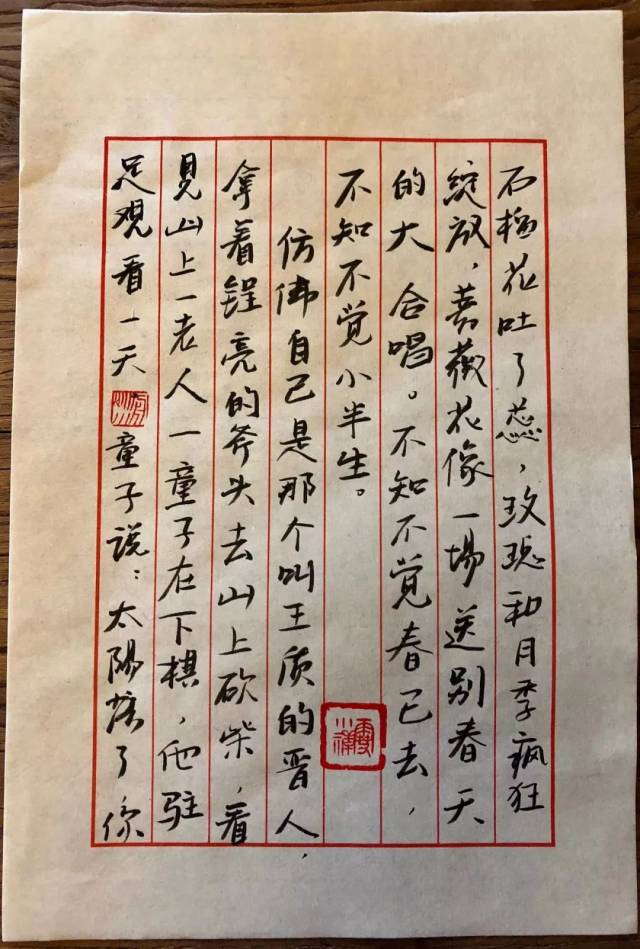 石榴花吐了蕊，玫瑰和月季疯狂
绽放，蔷薇花像一场送别春天
的大合唱。不知不觉春已去，
不知不觉小半生。
仿佛自己是那个叫王质的晋人，
拿着锃亮的斧头去山上砍柴，看
见山上一老人一童子在下棋，他驻
足观看一天 童子说：太阳落了你